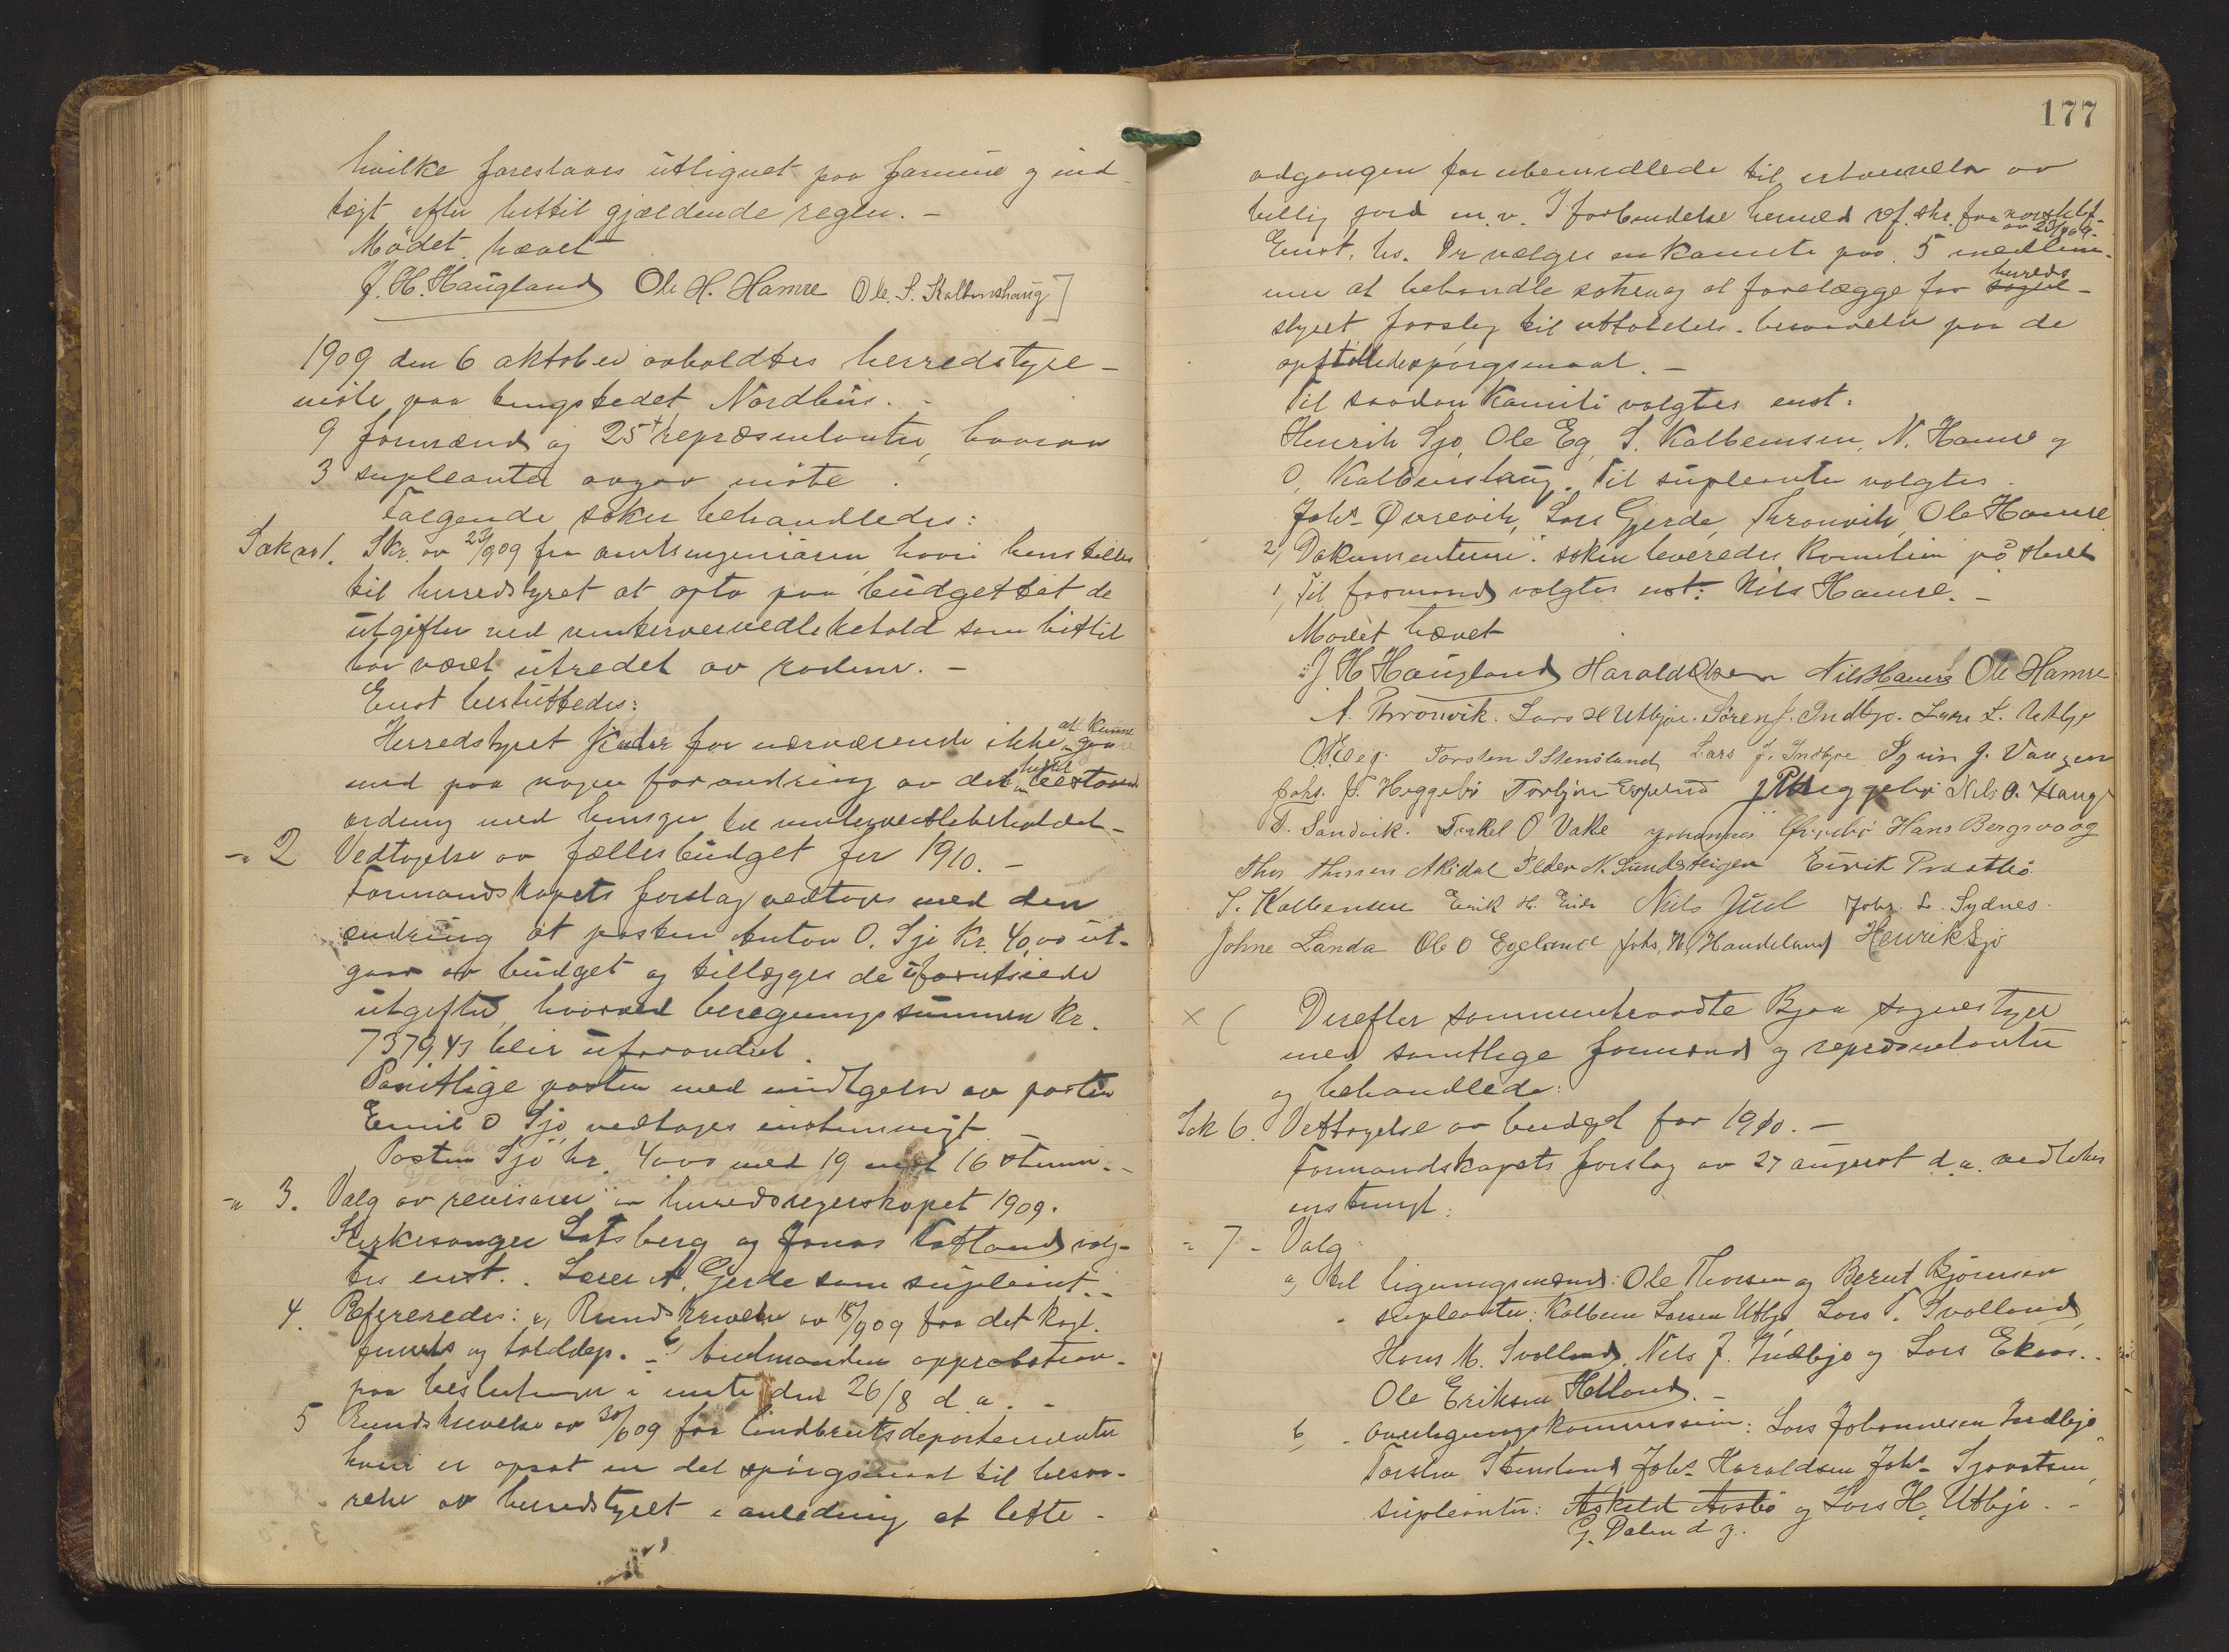 hvilke foreslaaes utlignet paa formue og ind-
tægt efter hittil gjældende regler. -
Mödet hævet
J. H. Haugland Ole H. Hamre Ole S. Kolbenshaug
1909 den 6 oktober avholdtes herredstyre-
möte paa tingstedet Nordhus. -
9 formænd og 25 repræsentanter, hvorav
3 supleanter avgav möte.
Følgende saker behandledes:
Sak no 1. Skr. av 23/9 09 fra amtsingeniøren hvori henstilles
til herredstyret at opta paa budgettet de
utgifter ved vintervei vedlikehold som hittil
har været utredet av rodene. -
Enst. besluttedes:
Herredstyret finder for nærværende ikke at kunne gaa
med paa nogen forandring av den hittil bestaaende
ordning med hensyn til vinterveivedlikeholdet -
-"- 2 Vedtagelse av fælles budget for 1910. -
Formandskapets forslag vedtoges med den
endring at posten Anton O. Sjo kr. 40,00 ut-
gaar av budget og tillægges de uforutseede
utgifter, hvorved beregningssummen kr.
7379,43 blir uforandret.
Samtlige poster med undtagelse av posten
Emil O Sjo vedtoges enstemmigt.
Posten Sjo kr. 40,00 med 19 mot 16 stemm. -
-"- 3. Valg av revisorer herredsregnskapet 1909.
Kirkesanger Latsberg og Jonas Tatland valg-
tes enst. Lærer A. Gjerde som supleant. -
4. Refereredes: a, Rundskrivelse av 18/9 09 fra det kgl.
finants og tolddep. - b, Amtmandens approbation
paa beslutninger i møte den 26/8 d. a. -
5 Rundskrivelse av 30/6 09 fra landbruksdepartementet
hvori er opsat en del spörgsmaal til besva-
relse av herredstyret i anledning at lette
177
adgangen for ubemidlede til erhvervelse av
billig jord m. v. I forbindelse hermed ref. skr. fra
Enst. bs. Der vælges en komite paa 5 medlem-
mer at behandle saken og at forelægge for herreds
styret forslag til uttalelse - besvarelse paa de
opstillede spörgsmaal. -
Til saadan komite valgtes enst:
Henrik Sjo, Ole Eg, S. Kolbensen, N. Hamre og
O. Kolbenshaug. Til supleanter valgtes
Johs. Øvrevik, Lars Gjerde, Thronvik, Ole Hamre
2, Dokumenterne i saken leveredes komiteen på stedet
1, Til formand valgtes enst: Nils Hamre. -
Mödet hævet
J. H. Haugland Harald Olsen Nils Hamre Ole Hamre
A. Thronvik. Lars H Utbjoe. Sören J. Indbjo. Lars L. Utbjo
O. Eeg. Torsten I Stensland Lars J. Indbjo J. Vangen
Johs. J. Heggebö Torbjörn Nils O. Haug
T. Sandvik. Torkel O Vake Johannes Hans Bergsvaag
Thor Thorsen Akidal Peder N. Sundsteigen Eirik Prestbö
S. Kolbensen Erik H. Eide Nils Juel Johs. L. Sydnes.
Johne Landa Ole O Egeland Johs. N. Handeland Henrik Sjo
x ( Derefter sammentraadte Bjoa sognestyre
med samtlige formænd og repræsentanter
og behandlede:
Sak 6. Vedtagelse av budget for 1910. -
Formandskapets forslag av 27 august d. a. vedtokes
enstemmigt.
" 7 - Valg
a, til ligningsmænd: Ole Thorsen og Berent Björnsen
" supleanter: Kolben Larsen Utbjo Lars T. Svolland,
Hans M. Svolland, Nils J. Indbjo og Lars Ekaas. -
Ole Eriksen Helland. -
b, " overligningskommission: Lars Johannesen Indbjo,
Torsten Stensland Johs. Haraldsen Johs.
supleanter: Askild og Lars H. Utbjo. -
G. Dalen d. y.